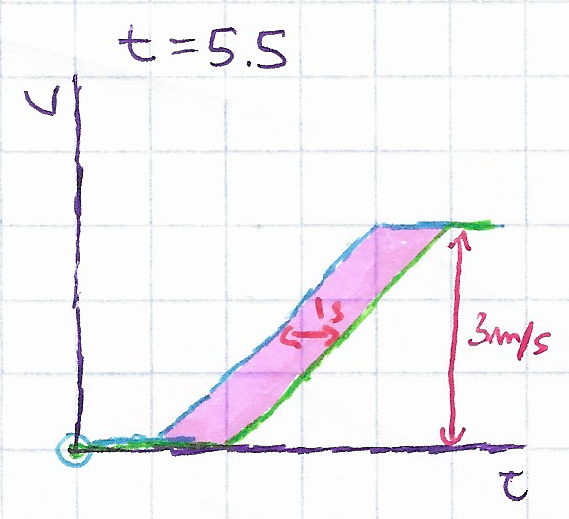 t=5.5
v
1s
3m/s
τ